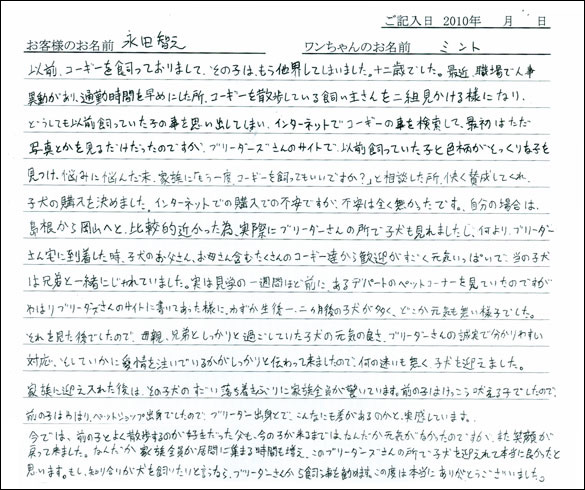 ご記入日 2010年　月　日
お客様のお名前 永田智え ワンちゃんのお名前 ミント
以前、コーギーを飼っておりまして、その子は、もう他界してしまいました。十二歳でした。最近、職場で人事
異動があり、通勤時間を早めにした所、コーギーを散歩している飼い主さんを二組見かける様になり、
どうしても以前飼っていた子の事を思い出してしまい、インターネットでコーギーの事を検索して、最初はただ
写真とかを見るだけだったのですが、ブリーダーズさんのサイトで、以前飼っていた子と色柄がそっくりな子を
見つけ、悩みに悩んだ末、家族に「もう一度、コーギーを飼ってもいいですか?」と相談した所、快く賛成してくれ、
子犬の購入を決めました。インターネットでの購入での不安ですが、不安は全く無かったです。自分の場合は、
島根から岡山へと、比較的近かった為、実際にブリーダーさんの所で子犬も見れましたし、何より、ブリーダー
さん宅に到着した時、子犬のお父さん、お母さん含むたくさんのコーギー達から歓迎がすごく元気いっぱいで、当の子犬
は兄弟と一緒にじゃれていました。実は見学の一週間ほど前に、あるデパートのペットコーナーを見ていたのですが
やはりブリーダーズさんのサイトに書いてあった様に、わずか生後一、二ヶ月後の子犬が多く、どこか元気も無い様子でした。
それを見た後でしたので、母親、兄弟としっかりと過ごしていた子犬の元気の良さ、ブリーダーさんの誠実で分かりやすい
対応、そしていかに愛情を注いでいるかがしっかりと伝わって来ましたので、何の迷いも無く、子犬を迎えました。
家族に迎え入れた後は、その子犬のすごい落ち着きぶりに家族全員が驚いています。前の子はけっこう吠える子でしたので、
前の子はやはり、ペットショップ出身でしたので、ブリーダー出身とで、こんなにも差があるのかと、実感しています。
今では、前の子とよく散歩するのが好きだった父も、今の子が来るまでは、なんだか元気がなかったのですが、また笑顔が
戻って来ました。なんだか家族全員が居間に集まる時間も増え、このブリーダーズさんの所で子犬を迎えれて本当に良かったと
思います。もし、知り合いが犬を飼いたいと言うなら、ブリーダーさんから飼う事を勧めます。この度は本当にありがとうございました。